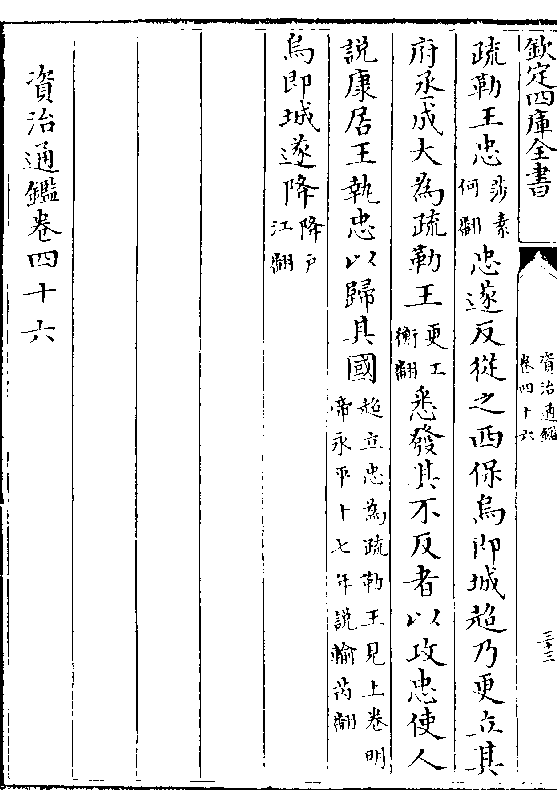 欽定四庫全書
資治通鑑
卷四十六
三十三
疏勒王忠莎素何翻忠遂反從之西保烏即城超乃更立其
府丞成大為疏勒王更工衡翻悉發其不反者以攻忠使人
說康居王執忠以歸其國超立忠為疏勒王見上卷明帝永平十七年說輸芮翻
烏即城遂降降戶江翻
資治通鑑卷四十六